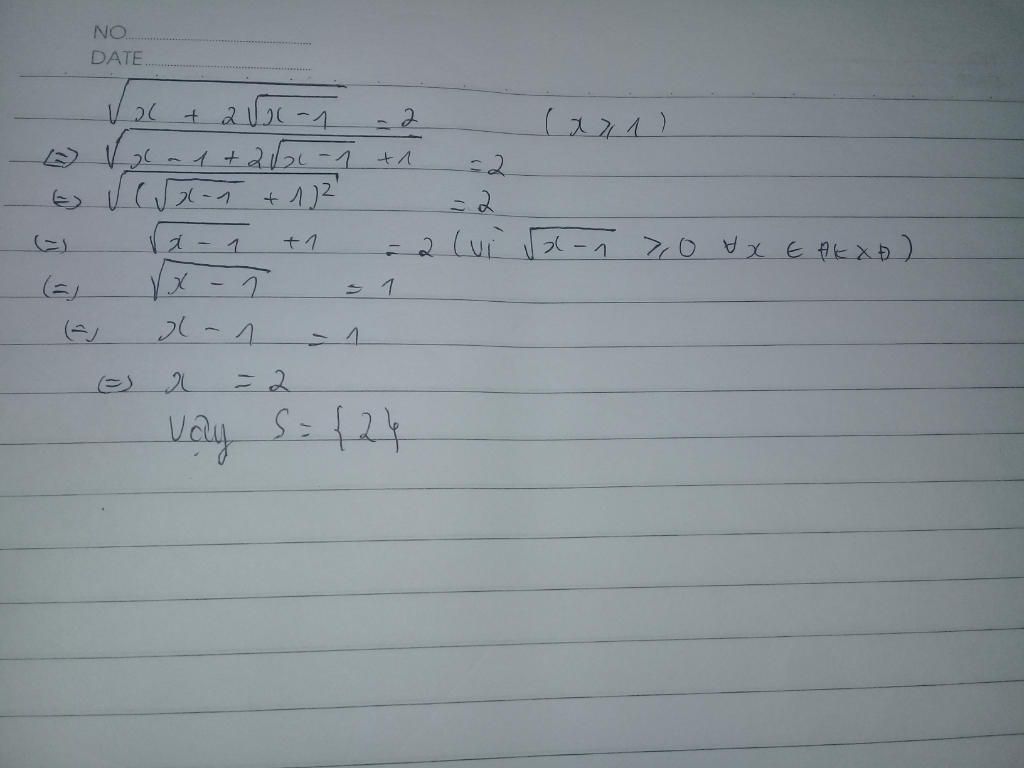 NO
DATE
√(x + 2√(x-1)) = 2 (x ≥ 1)
(=) √(x - 1 + 2√(x-1) + 1) = 2
(=) √((√(x-1) + 1)²) = 2
(=) √(x-1) + 1 = 2 (vì √(x-1) ≥ 0 ∀x ∈ ĐKXĐ)
(=) √(x-1) = 1
(=) x - 1 = 1
(=) x = 2
Vậy S = {2}